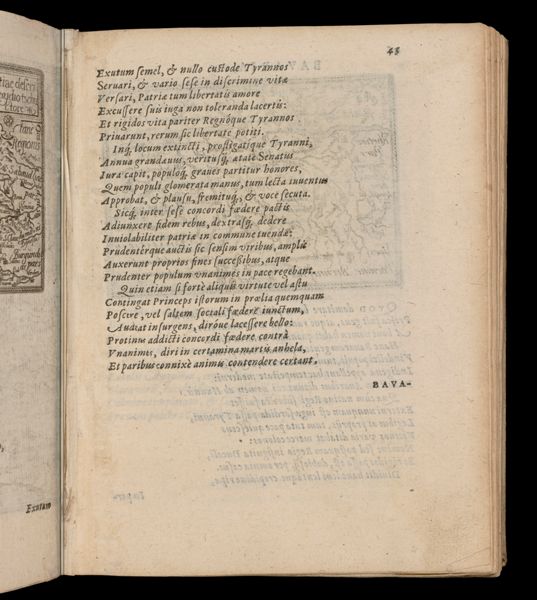 48
Exutum semel, & nullo custode Tyrannos
Seruari, & vario sese in discrimine vitæ
Versari, Patriæ tum libertatis amore
Excussere suis iuga non toleranda lacertis:
Et rigidos vita pariter Regnóque Tyrannos
Priuarunt, rerum sic libertate potiti.
Inq́ locum extincti, profligatique Tyranni,
Annua grandæuus, veritusq́, ætate Senatus
Iura capit, populoq́, graues partitur honores,
Quem populi glomerata manus, tum lecta iuuentus
Approbat, & plausu, fremituq́, & voce secuta.
Sicq́, inter sese concordi fœdere pactis
Adiunxere fidem rebus, dextrasq́, dedere
Inuiolabiliter patriæ in commune tuendæ:
Prudentérque auctis sic sensim viribus, ampliè
Auxerunt proprios fines successibus, atque
Prudenter populum vnanimes in pace regebant.
Quin etiam si fortè aliquis virtute vel astu
Contingat Princeps istorum in prælia quemquam
Poscere, vel saltem sociali fœdere iunctum,
Audeat insurgens, diróue lacessere bello:
Protinus addicti concordi fœdere contrà
Vnanimes, diri in certamina martis anhela,
Et paribus connixè animis contendere certant.
BAVA-
Exutum